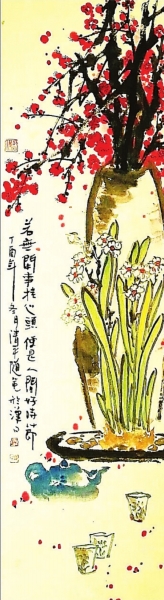 若無閑事挂心頭 便是人間好時節
丁酉年冬月清平隨笔於溧